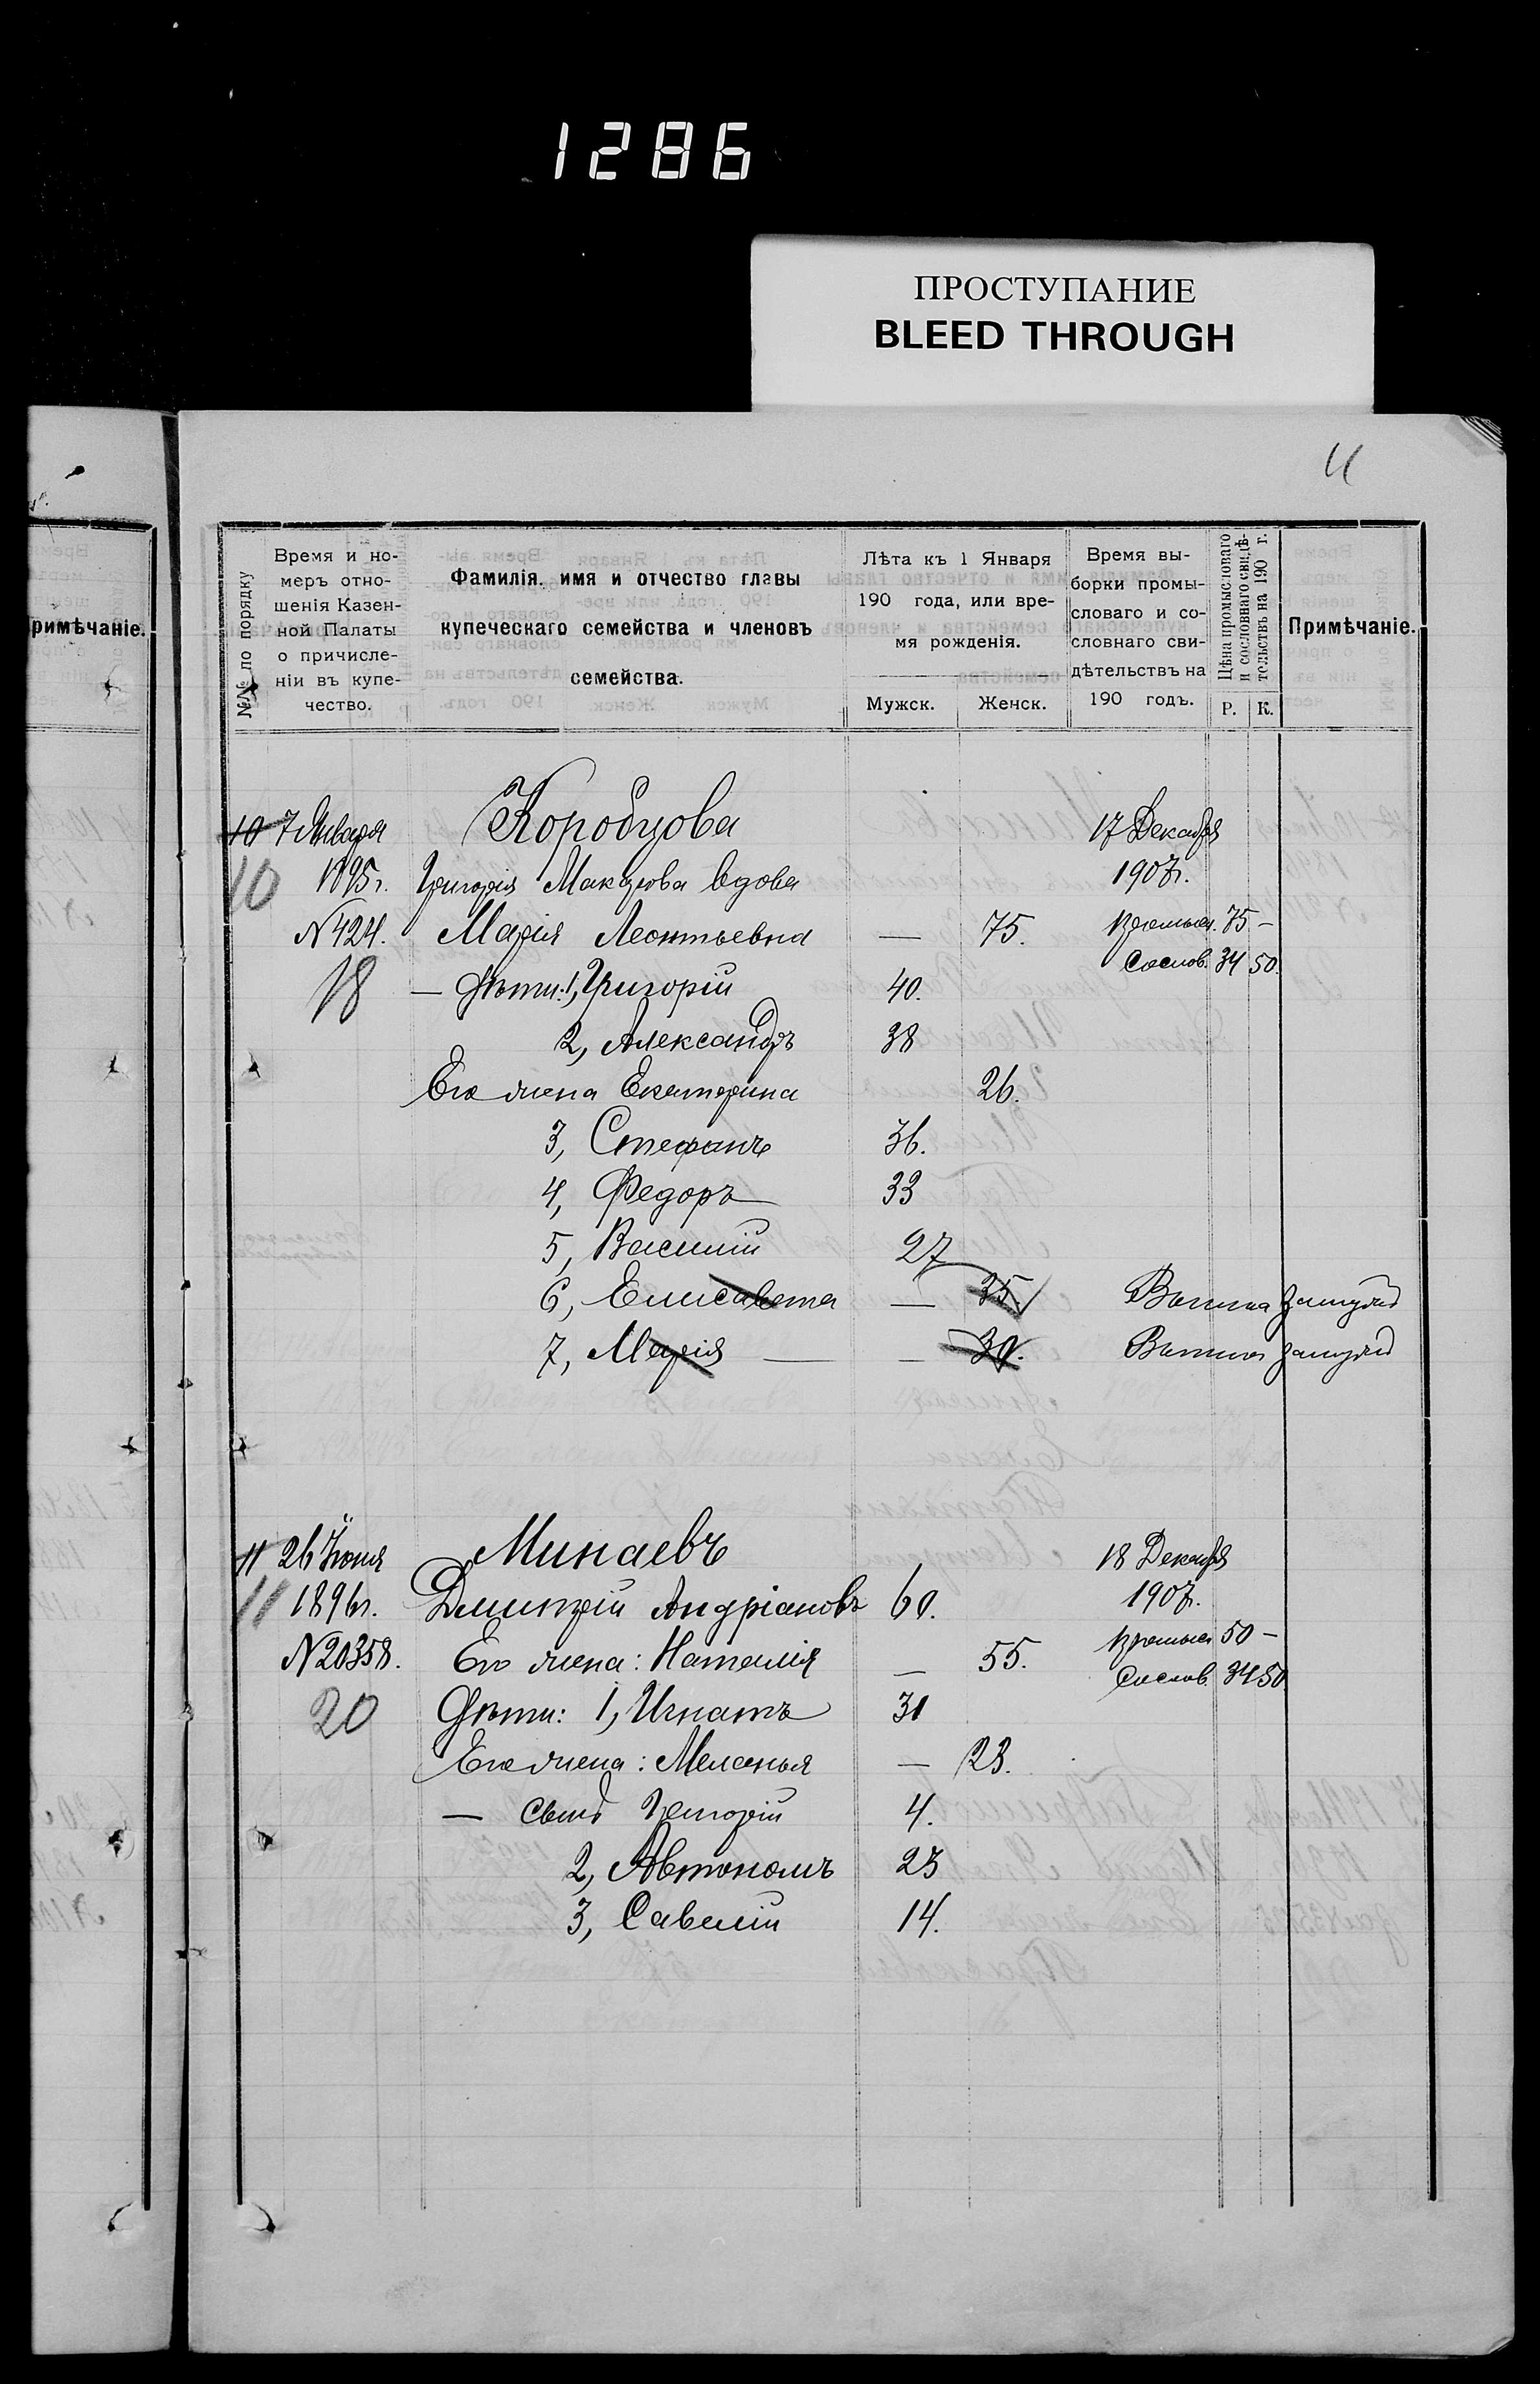 1286
ПРОСТУПАНИЕ
BLEED THROUGH
4
римѣчаніе.
№№ по порядку
Время и но-
меръ отно-
шенія Казен-
ной Палаты
о причисле-
ніи въ купе-
чество.
Фамилія, имя и отчество главы
купеческаго семейства и членовъ
семейства.
Лѣта къ 1 Января
190 года, или вре-
мя рожденія.
Мужск. Женск.
Время вы-
борки промы-
словаго и со-
словнаго сви-
дѣтельствъ на
190 годъ.
Цѣна промысловаго
и сословнаго свидѣ-
тельствъ на 190 г.
Р. К.
Примѣчаніе.
10 7 Января Коробцова 17 Декабря
10 1895г. Григорія вдова 1907г.
N 424. Марія Леонтьевна — 75. Промысл. 75 —
Сослов. 34 50.
18 — Дѣти: 1, Григорій 40.
2, Александръ 38
Его жена Екатерина 26.
3, Стефанъ 36.
4, Федоръ 33
5, Василій 27
6, Елисавета — 35. Вышла замужъ
7, Марія — — 30. Вышла замужъ
11 26 Іюня Минаевъ 18 Декабря
11 1896г. Дмитрій Андріановъ 60. 1907г.
N 20358. Его жена: Наталія — 55. Промысл 50 —
Сослов. 34 50
20 Дѣти: 1, Игнатъ 31
Его жена: Меланья — 23.
— сынъ Григорій 4.
2, Автономъ 23
3, Савелій 14.